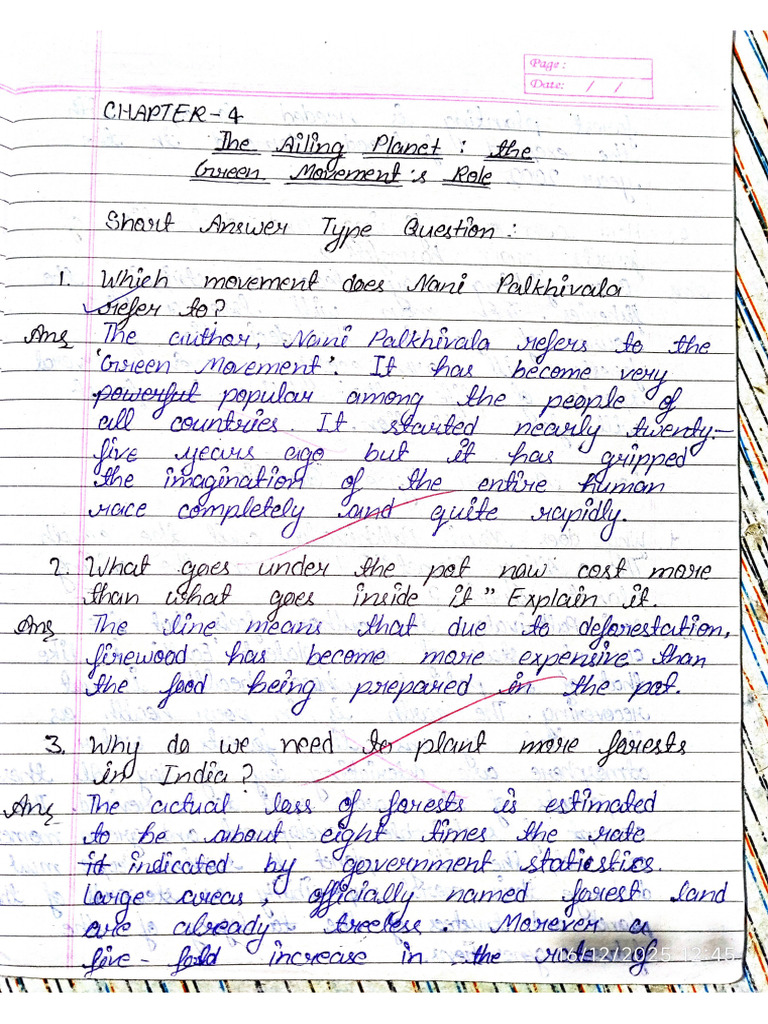 Page:
Date: / /
CHAPTER-4
The Ailing Planet: the
Green Movement's Role
Short Answer Type Question:
1. Which movement does Nani Palkhivala
refer to?
Ans The author, Nani Palkhivala refers to the
'Green Movement'. It has become very
powerful popular among the people of
all countries. It started nearly twenty-
five years ago but it has gripped
the imagination of the entire human
race completely and quite rapidly.
2. What goes under the pot now cost more
than what goes inside it" Explain it.
Ans The line means that due to deforestation,
firewood has become more expensive than
the food being prepared in the pot.
3. Why do we need to plant more forests
in India?
Ans The actual loss of forests is estimated
to be about eight times the rate
it indicated by government statistics.
Large areas, officially named forest land
are already treeless. Morever a
five-fold increase in the rate of
16/12/2025 12:45